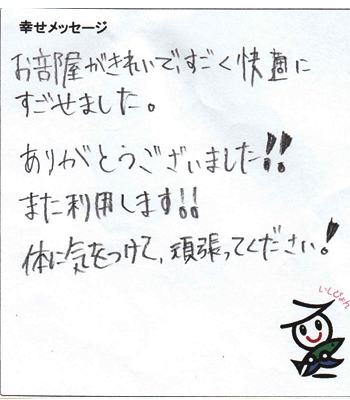 幸せメッセージ
お部屋がきれいで、すごく快適に
すごせました。
ありがとうございました!!
また利用します!!
体に気をつけて、頑張ってください!
いしぴょん